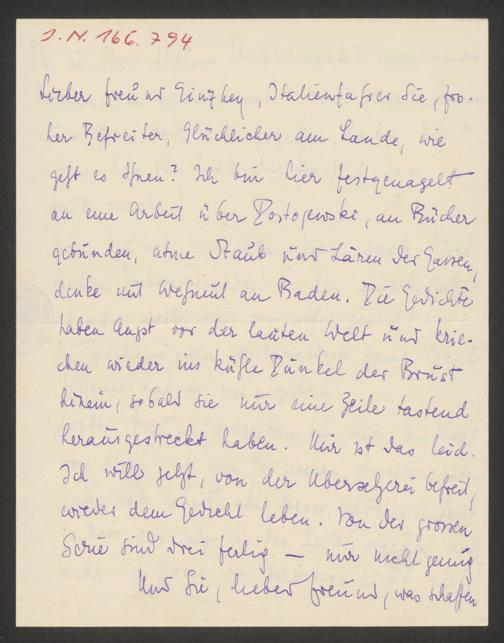 I.N. 166.794
Lieber Freund Ginzkey, Italienfahrer Sie, fro-
her Befreiter, Glücklicher am Lande, wie
geht es Ihnen? Ich bin hier festgenagelt
an eine Arbeit über Dostojewski, an Bücher
gebunden, atme Staub und Lärm der Gassen,
denke mit Wehmut an Baden. Die Gedichte
haben Angst vor der lauten Welt und krie-
chen wieder ins kühle Dunkel der Brust
hinein, sobald sie nur eine Zeile tastend
herausgestreckt haben. Mir ist das leid.
Ich will jetzt, von der Übersetzerei befreit,
wieder dem Gedicht leben. Von der grossen
Serie sind drei fertig — nur nicht genug
Und Sie, lieber Freund, was schaffen